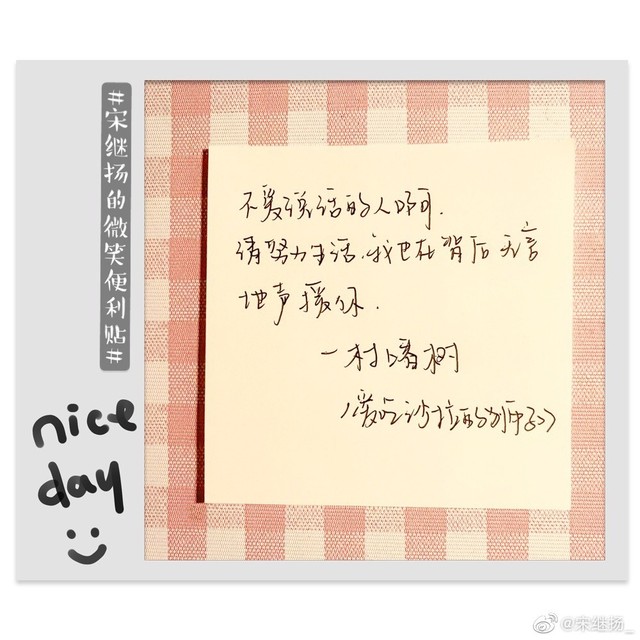 #宋继扬的微笑便利贴#
不爱说话的人啊.
请努力生活.我也在背后无言
地声援你.
一村上春树
《爱吃沙拉的狮子》
nice
day
@宋继扬_